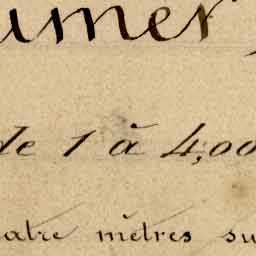 umer
de 1 à 4,00
atre mètres su